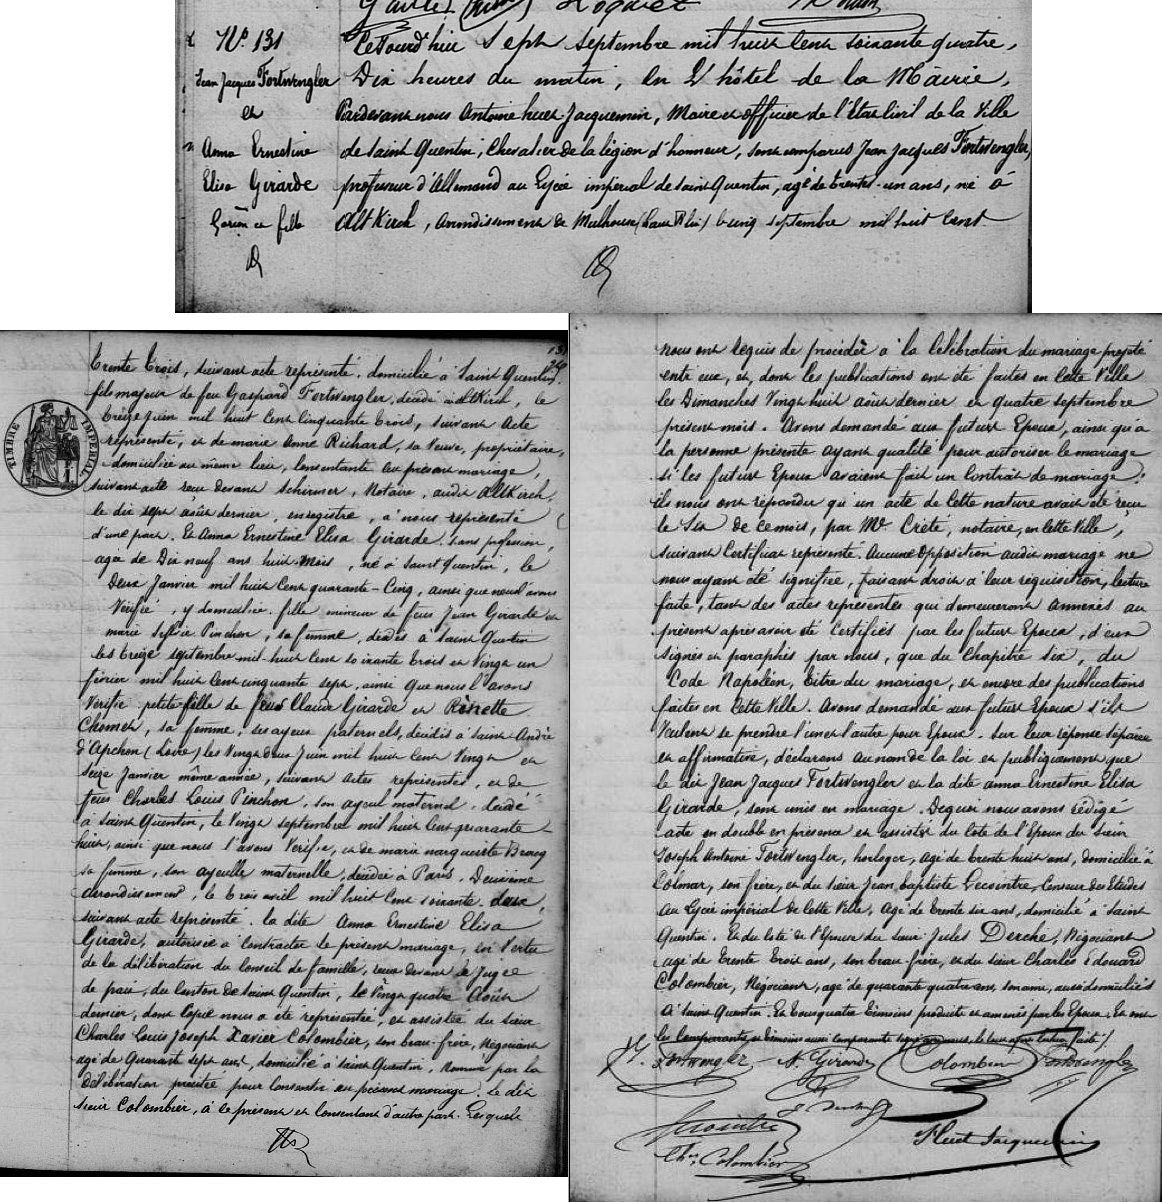 N° 131
Jean Jacques Fortwengler
et
Anna Ernestine
Elisa Girarde
Garçon et fille
Cejourd'hui Sept Septembre mil huit cent soixante quatre,
Dix heures du matin, en l'hôtel de la Mairie,
Pardevant nous Antoine huet Jacquemin, Maire et officier de l'Etat Civil de la Ville
de Saint Quentin, Chevalier de la légion d'honneur, sont comparus Jean Jacques Fortwengler,
professeur d'Allemand au Lycée impérial de Saint Quentin, agé de trente-un ans, né à
AltKirch, arrondissement de Mulhouse (haut Rhin) le cinq septembre mil huit cent
trente trois, suivant acte représenté, domicilié à Saint Quentin,
fils majeur de feu Gaspard Fortwengler, décédé à AltKirch, le
treize juin mil huit cent cinquante trois, suivant acte
représenté, et de marie Anne Richard, sa Veuve, propriétaire,
domiciliée au même lieu, consentante au présent mariage,
suivant acte reçu devant Schirmer, Notaire, audit AltKirch,
le dix sept août dernier, enregistré, à nous représenté
d'une part. Et Anna Ernestine Elisa Girarde, sans profession,
agée de Dix neuf ans huit mois, née à Saint Quentin, le
Deux Janvier mil huit cent quarante-Cinq, ainsi que nous l'avons
Vérifié, y domiciliée, fille mineure de feus Jean Girarde et
marie Sylvie Pinchon, sa femme, décédés à Saint Quentin
les treize septembre mil-huit cent soixante trois et Vingt un
février mil huit cent cinquante sept, ainsi que nous l'avons
Vérifié. petite-fille de feus Claude Girarde et Rénette
Chomet, sa femme, ses ayeux paternels, décédés à Saint André
d'Apchon (Loire) les Vingt deux Juin mil huit cent Vingt et
seize Janvier même année, suivant actes représentés, et de
feus Charles Louis Pinchon, son ayeul maternel, décédé
à Saint Quentin, le Vingt septembre mil huit cent quarante
huit, ainsi que nous l'avons Vérifié, et de marie marguerite
sa femme, son ayeulle maternelle, décédée à Paris, Deuxième
arrondissement, le trois avril mil huit cent soixante deux,
suivant acte représenté. la dite Anna Ernestine Elisa
Girarde, autorisée à contracter le présent mariage, en Vertu
de la délibération du Conseil de famille, reçue devant le Juge
de paix, du Canton de Saint Quentin, le Vingt quatre Août
dernier, dont Copie nous a été représentée, et assistée du sieur
Charles Louis Joseph Xavier Colombier, son beau-frère, Négociant
agé de Quarante sept ans, domicilié à Saint Quentin, Nommé par la
délibération précitée pour consentir au présent mariage. le dit
sieur Colombier, à ce présent et consentant d'autre part. Lesquels
nous ont requis de procéder à la célébration du mariage projeté
entre eux, et, dont les publications ont été faites en Cette Ville
les Dimanches Vingt huit août dernier et quatre septembre
présent mois. Avons demandé aux futurs Epoux, ainsi qu'à
la personne présente ayant qualité pour autoriser le mariage
si les futurs Epoux avaient fait un Contrat de mariage;
ils nous ont répondu qu'un acte de Cette nature avait été reçu
le Six de ce mois, par Me Crété, notaire, en Cette Ville,
suivant Certificat représenté. Aucune opposition audit mariage ne
nous ayant été signifiée, faisant droit à leur réquisition, lecture
faite, tant des actes représentés qui demeureront annexés au
présent après avoir été Certifiés par les futurs Epoux, d'eux
signés et paraphés par nous, que du Chapitre six, du
Code Napoléon, titre du mariage, et encore des publications
faites en Cette Ville. Avons demandé aux futurs Epoux s'ils
Veulent se prendre l'un et l'autre pour Epoux. Sur leur réponse séparée
et affirmative, déclarons au nom de la loi et publiquement que
le dit Jean Jacques Fortwengler et la dite anna Ernestine Elisa
Girarde, sont unis en mariage. De quoi nous avons rédigé
acte en double en présence et assistés du coté de l'Epoux du Sieur
Joseph Antoine Fortwengler, horloger, agé de trente huit ans, domicilié à
Colmar, son frère, et du sieur Jean baptiste Lecointre, Censeur des Etudes
au Lycée impérial de Cette Ville, Agé de trente six ans, domicilié à Saint
Quentin. Et du coté de l'Epouse du sieur Jules Derche, Négociant
agé de trente trois ans, son beau-frère, et du sieur Charles Edouard
Colombier, Négociant, agé de quarante quatre ans, son ami, aussi domiciliés
à Saint Quentin. Et tous quatre témoins produits et amenés par les Epoux. Et ont
les comparants et témoins aussi comparants signé avec nous, le tout après lecture faite.
Fortwengler A. Girarde Colombier Fortwengler
Lecointre J. Derche Huet Jacquemin
Ches Colombier
TIMBRE IMPERIAL